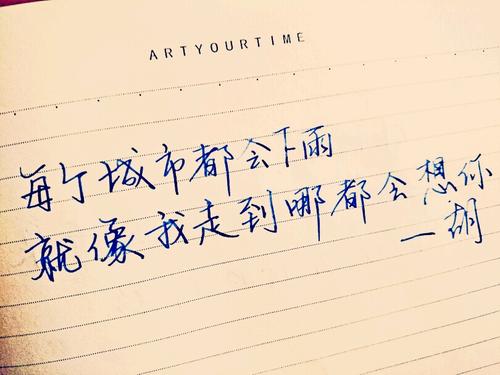 ARTYOURTIME
每个城市都会下雨
就像我走到哪都会想你
一胡